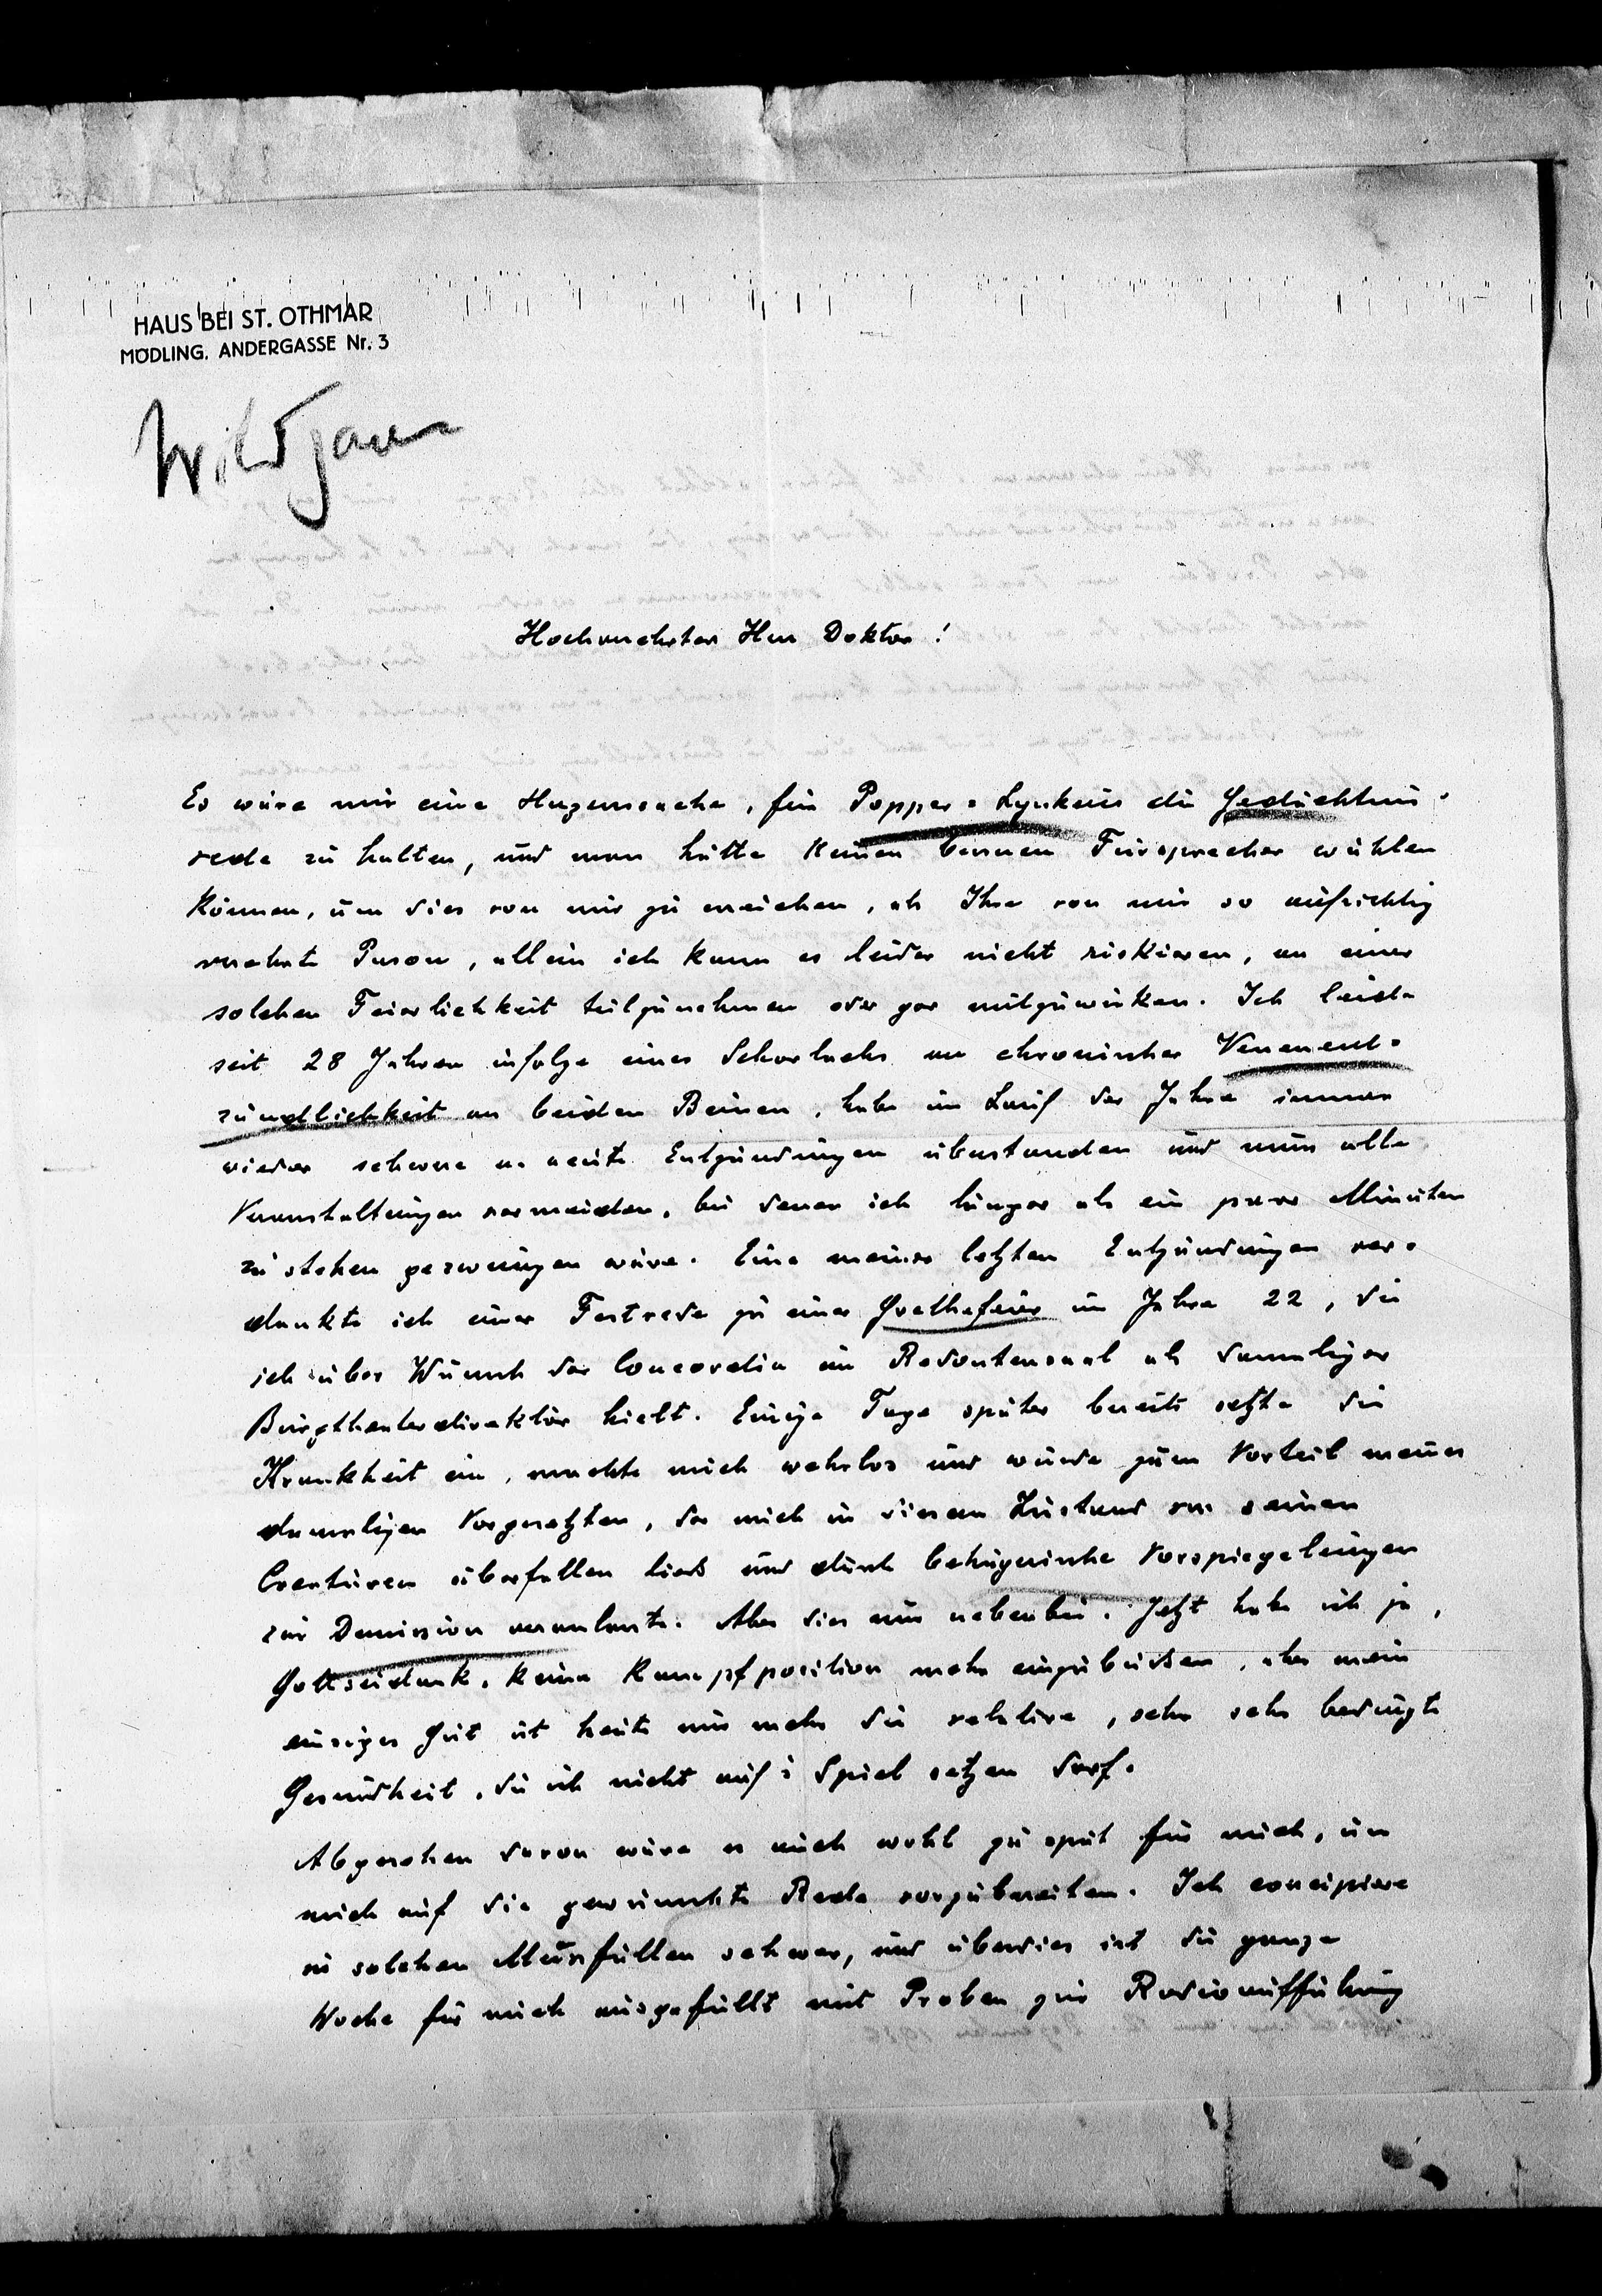 HAUS BEI ST. OTHMAR
MÖDLING, ANDERGASSE Nr. 3
Wildgans
Hochverehrter Herr Doktor!
Es wäre mir eine Herzenssache, für Popper-Lynkeus die Gedächtnis-
rede zu halten, und man hätte keinen bessern Fürsprecher wählen
können, um dies von mir zu erreichen, als Ihre von mir so aufrichtig
verehrte Person, allein ich kann es leider nicht riskieren, an einer
solchen Feierlichkeit teilzunehmen oder gar mitzuwirken. Ich leide
seit 28 Jahren infolge eines Scharlachs an chronischer Venenent-
zündlichkeit an beiden Beinen, habe im Lauf der Jahre immer
wieder schwere u. acute Entzündungen überstanden und muss alle
Veranstaltungen vermeiden, bei denen ich länger als ein paar Minuten
zu stehen gezwungen wäre. Eine meiner letzten Entzündungen ver-
dankte ich einer Festrede zu einer Goethefeier im Jahre 22, die
ich über Wunsch der Concordia im Redoutensaal als damaliger
Burgtheaterdirektor hielt. Einige Tage später bereits setzte die
Krankheit ein, machte mich wehrlos und wurde zum Vorteil meines
damaligen Vorgesetzten, der mich in diesem Zustand von seinen
Creaturen überfallen liess und durch betrügerische Vorspiegelungen
zur Demission veranlasste. Aber dies nur nebenbei. Jetzt habe ich ja,
Gottseidank, keine Kampfposition mehr einzubüssen, aber mein
einziges Gut ist heute nur mehr die relative, sehr sehr bedingte
Gesundheit, die ich nicht auf's Spiel setzen darf.
Abgesehen davon wäre es auch wohl zu spät für mich, um
mich auf die gewünschte Rede vorzubereiten. Ich concipiere
in solchen Fällen schwer, und überdies ist die ganze
Woche für mich ausgefüllt mit Proben zur Radioaufführung